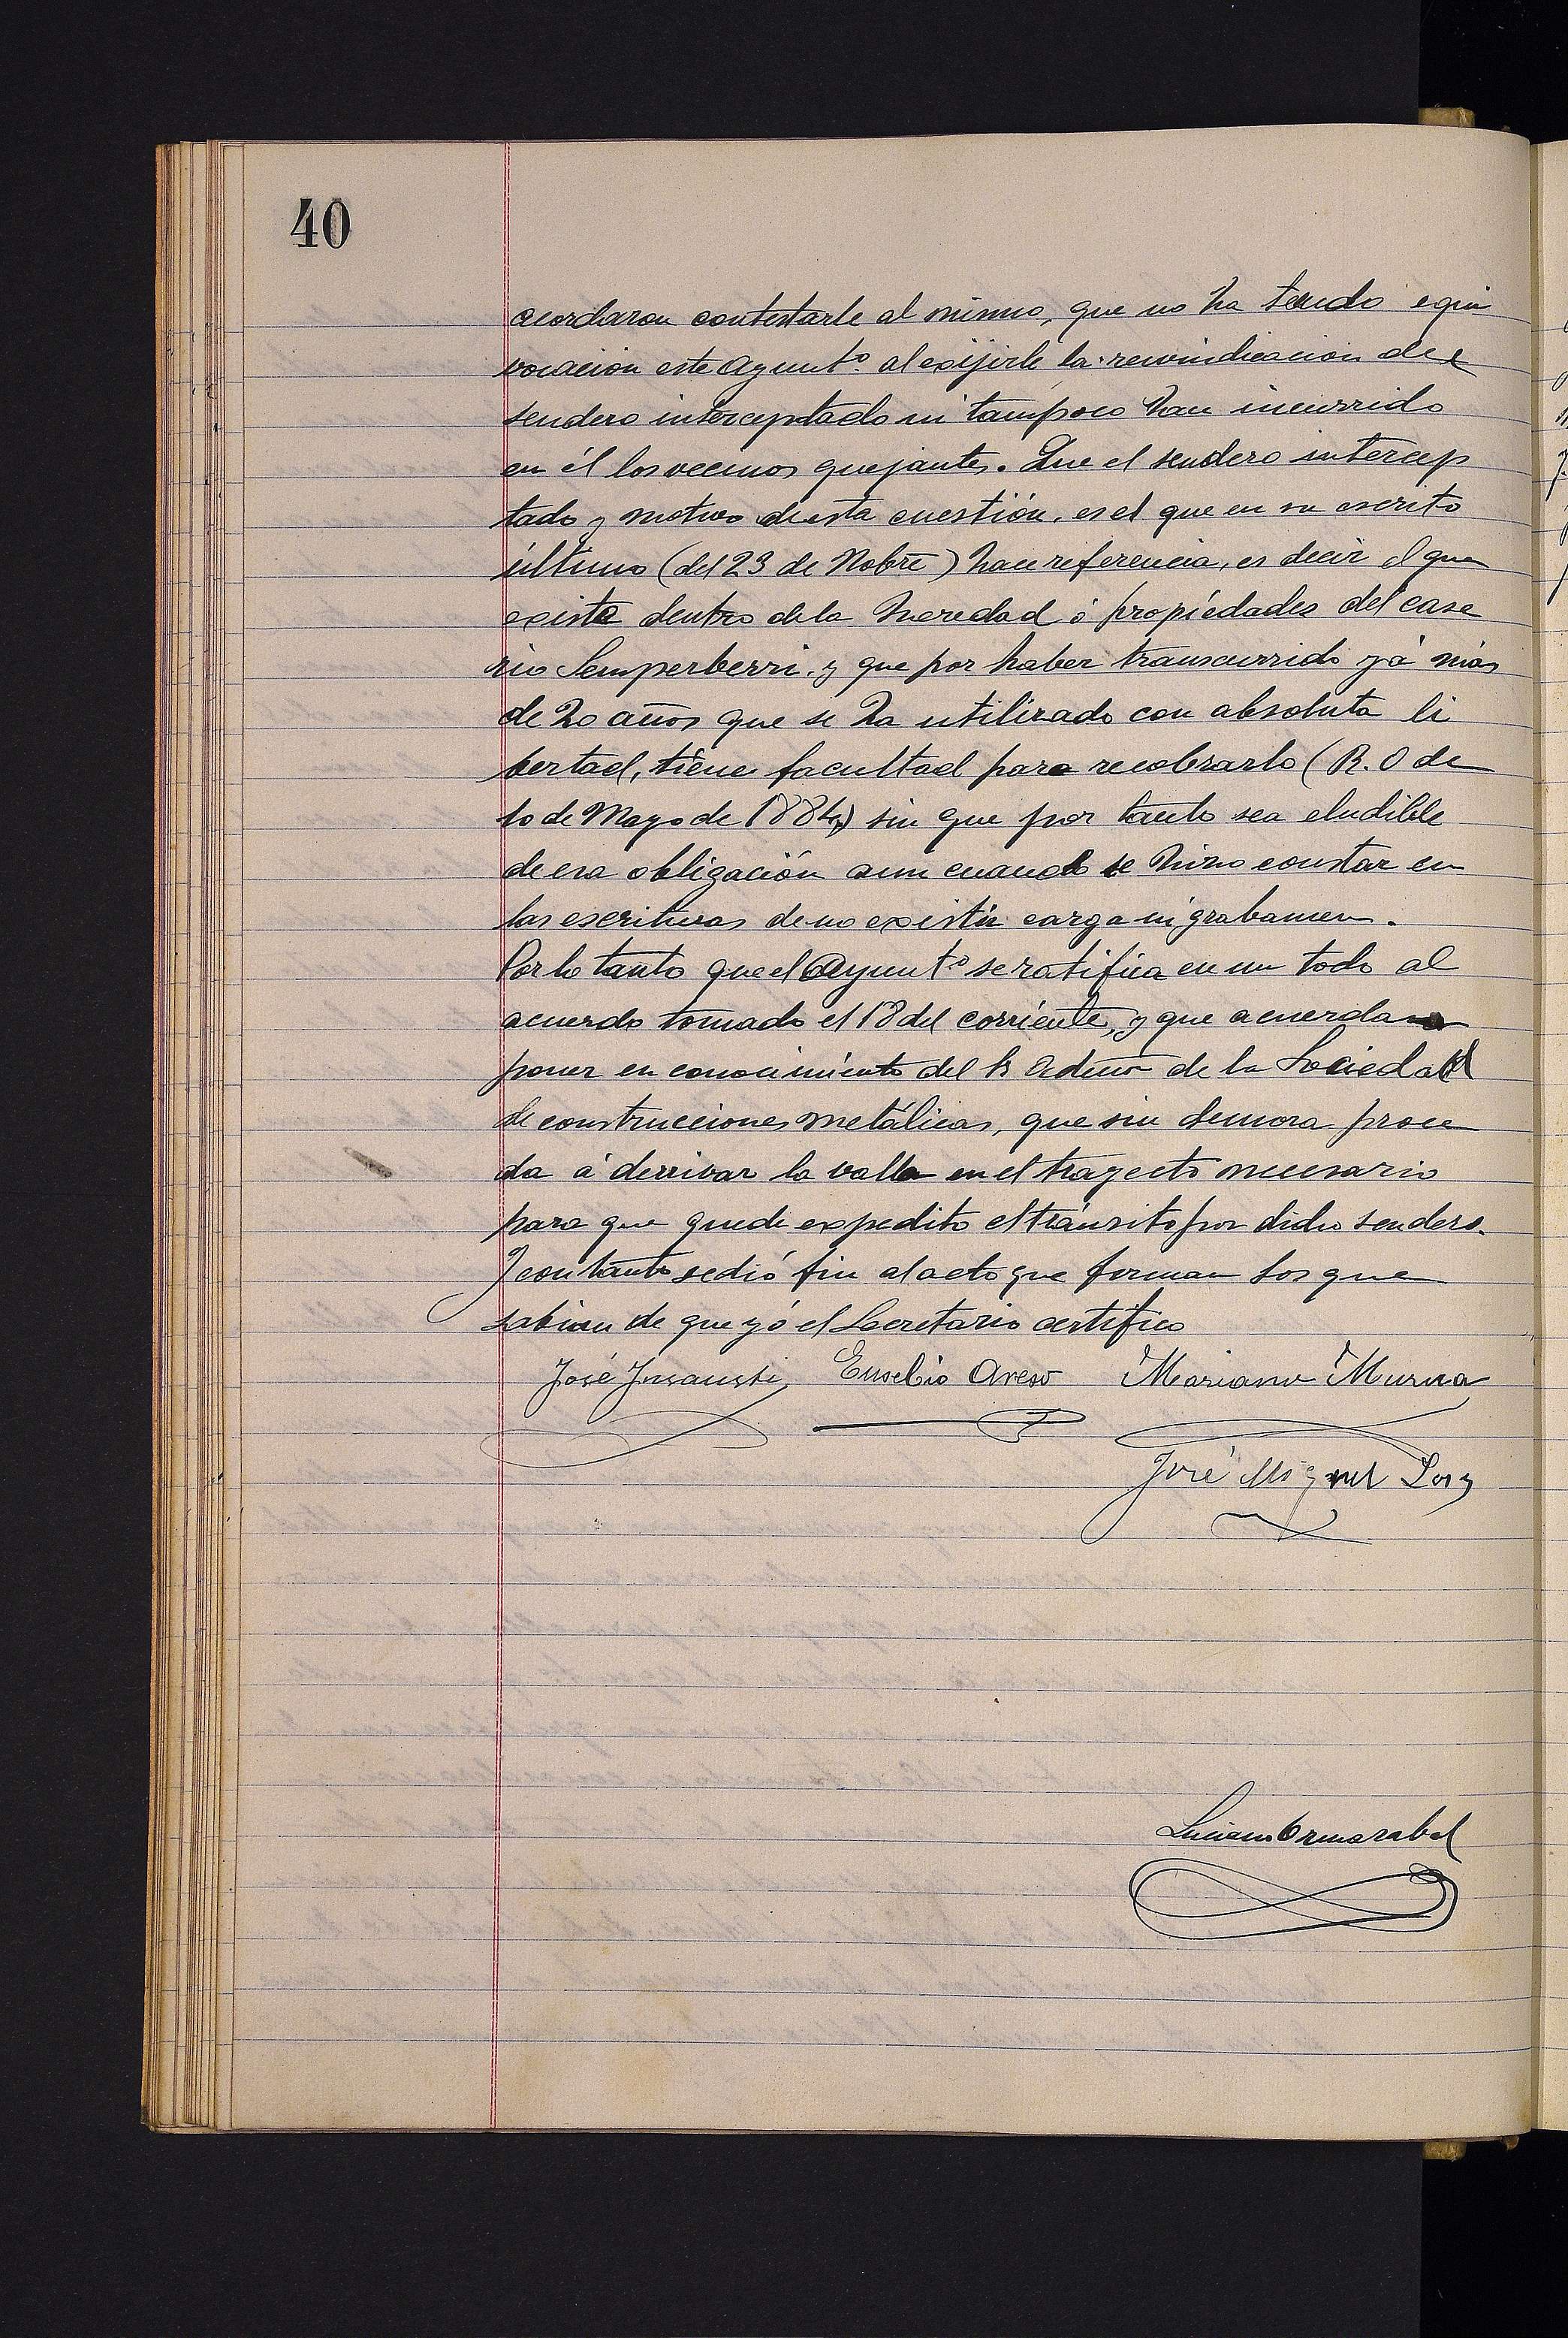 40
acordaron contestarle al mismo, que no ha tenido equi
vocación este Ayunt.º al exijirle la reivindicacion del
sendero interceptado ni tampoco han incurrido
en él los vecinos quejantes. Que el sendero intercep
tado y motivo de esta cuestión, es el que en su escrito
último (del 23 de Nobre) hace referencia, es decir el que
existe dentro de la heredad ó propiedades del case
rio Semperberri, y que por haber transcurrido yá más
de 20 años que se ha utilizado con absoluta li
bertad, tiene facultad para recobrarlo (R. O de
10 de Mayo de 1884) sin que por tanto sea eludible
de esa obligación aun cuando se hizo constar en
las escrituras de no existir carga ni grabamen.
Por lo tanto que el Ayunt.º se ratifica en un todo al
acuerdo tomado el 18 del corriente, y que acuerda
poner en conocimiento del Sr Admor de la Sociedad
de construcciones metálicas, que sin demora proce
da á derrivar la valla en el trayecto necesario
para que quede expedito el tránsito por dicho sendero.
Y con tanto se dió fin al acto que firman los que
sabían de que yó el Secretario certifico
José Insausti Eusebio Areso Mariano Murua
José Miguel
Luciano Ormazabal